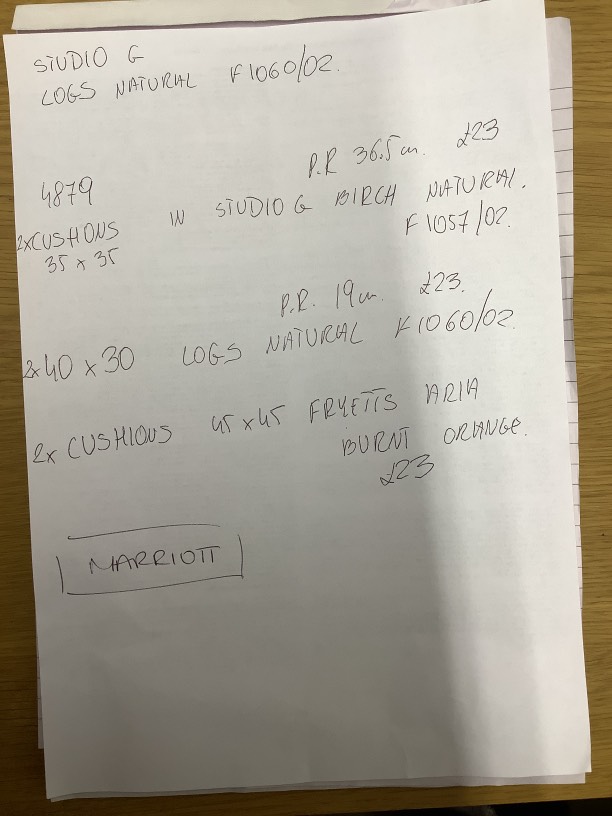 STUDIO G
LOGS NATURAL F1060/02.
P.R 36.5cm. £23
4879
2xCUSHIONS IN STUDIO G BIRCH NATURAL.
35 x 35 F1057/02.
P.R. 19cm. £23.
2x40 x 30 LOGS NATURAL F1060/02
2x CUSHIOUS 45 x 45 FRYETTS ARIA
BURNT ORANGE.
£23
MARRIOTT